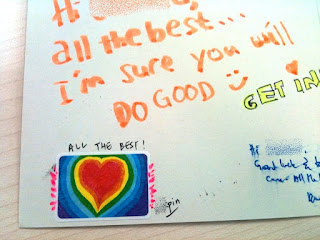 Hi
all the best...
I'm sure you will
DO GOOD
GET IN
ALL THE BEST!
Hi
Good luck &
All the
pin